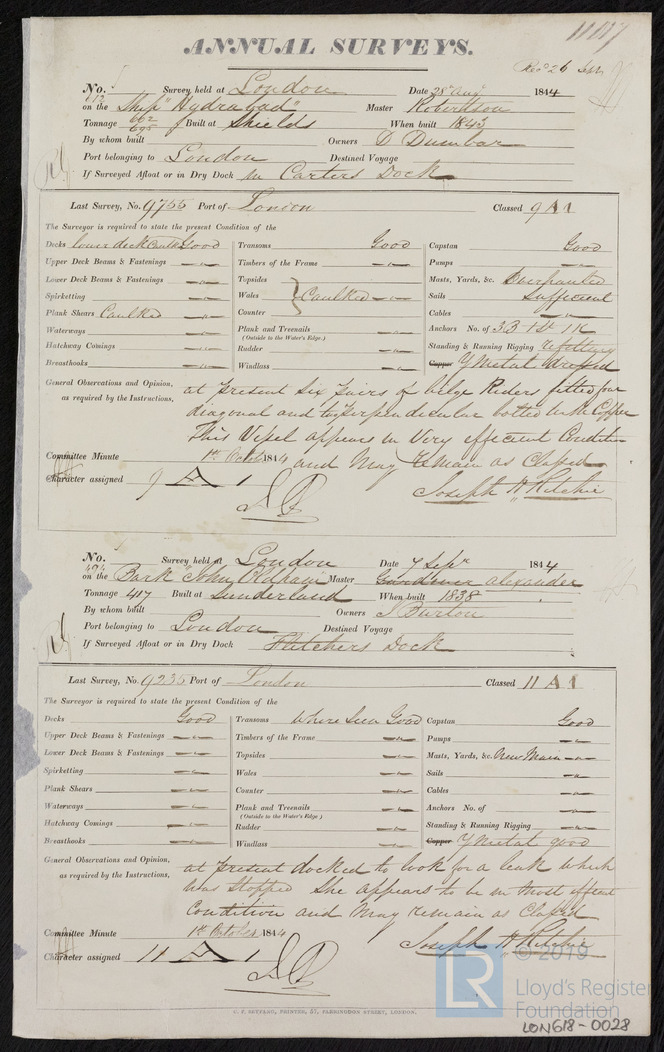 11117
ANNUAL SURVEYS.
Rec 26 Sept
No. 612 Survey held at London Date 28 Aug 1844
on the Ship "Hydrabad" Master Robertson
Tonnage 662 Built at Shields When built 1843
By whom built Owners D Dunbar
Port belonging to London Destined Voyage
If Surveyed Afloat or in Dry Dock in Carters Dock
Last Survey, No. 9755 Port of London Classed 9 A 1
The Surveyor is required to state the present Condition of the
Decks lower deck Caulk Good Transoms Good Capstan Good
Upper Deck Beams & Fastenings Timbers of the Frame Pumps
Lower Deck Beams & Fastenings Topsides Masts, Yards, &c.
Spirketting Wales Caulked Sails Sufficient
Plank Shears Caulked Counter Cables
Waterways Plank and Treenails Anchors No. of 3 B
(Outside to the Water's Edge.)
Hatchway Comings Rudder Standing & Running Rigging refitting
Breasthooks Windlass Copper Y Metal dressed
General Observations and Opinion, as required by the Instructions,
at present six pairs of bilge Riders fitted four
diagonal and two perpendicular bolted with Copper
This Vessel appears in Very efficient Condition
Committee Minute 1st October 1844 and May remain as Classed
Character assigned 9 A 1 Joseph H Ritchie
No. 494 Survey held at London Date 7 Sepr 1844
on the Bark "John Oldham" Master Gardiner Alexander
Tonnage 417 Built at Sunderland When built 1838
By whom built Owners J Burton
Port belonging to London Destined Voyage
If Surveyed Afloat or in Dry Dock Fletchers Dock
Last Survey, No. 9235 Port of London Classed 11 A 1
The Surveyor is required to state the present Condition of the
Decks Good Transoms Where Seen Good Capstan Good
Upper Deck Beams & Fastenings Timbers of the Frame Pumps
Lower Deck Beams & Fastenings Topsides Masts, Yards, &c. New Main
Spirketting Wales Sails
Plank Shears Counter Cables
Waterways Plank and Treenails Anchors No. of
(Outside to the Water's Edge.)
Hatchway Comings Rudder Standing & Running Rigging
Breasthooks Windlass Copper Y Metal good
General Observations and Opinion, as required by the Instructions,
at present docked to look for a leak which
was stopped She appears to be in most efficient
Condition and May remain as Classed
Committee Minute 1st October 1844
Character assigned 11 A 1 Joseph H Ritchie
C. F. SEYFANG, PRINTER, 57, FARRINGDON STREET, LONDON.
© 2019
LR Lloyd's Register
Foundation
LON618-0028